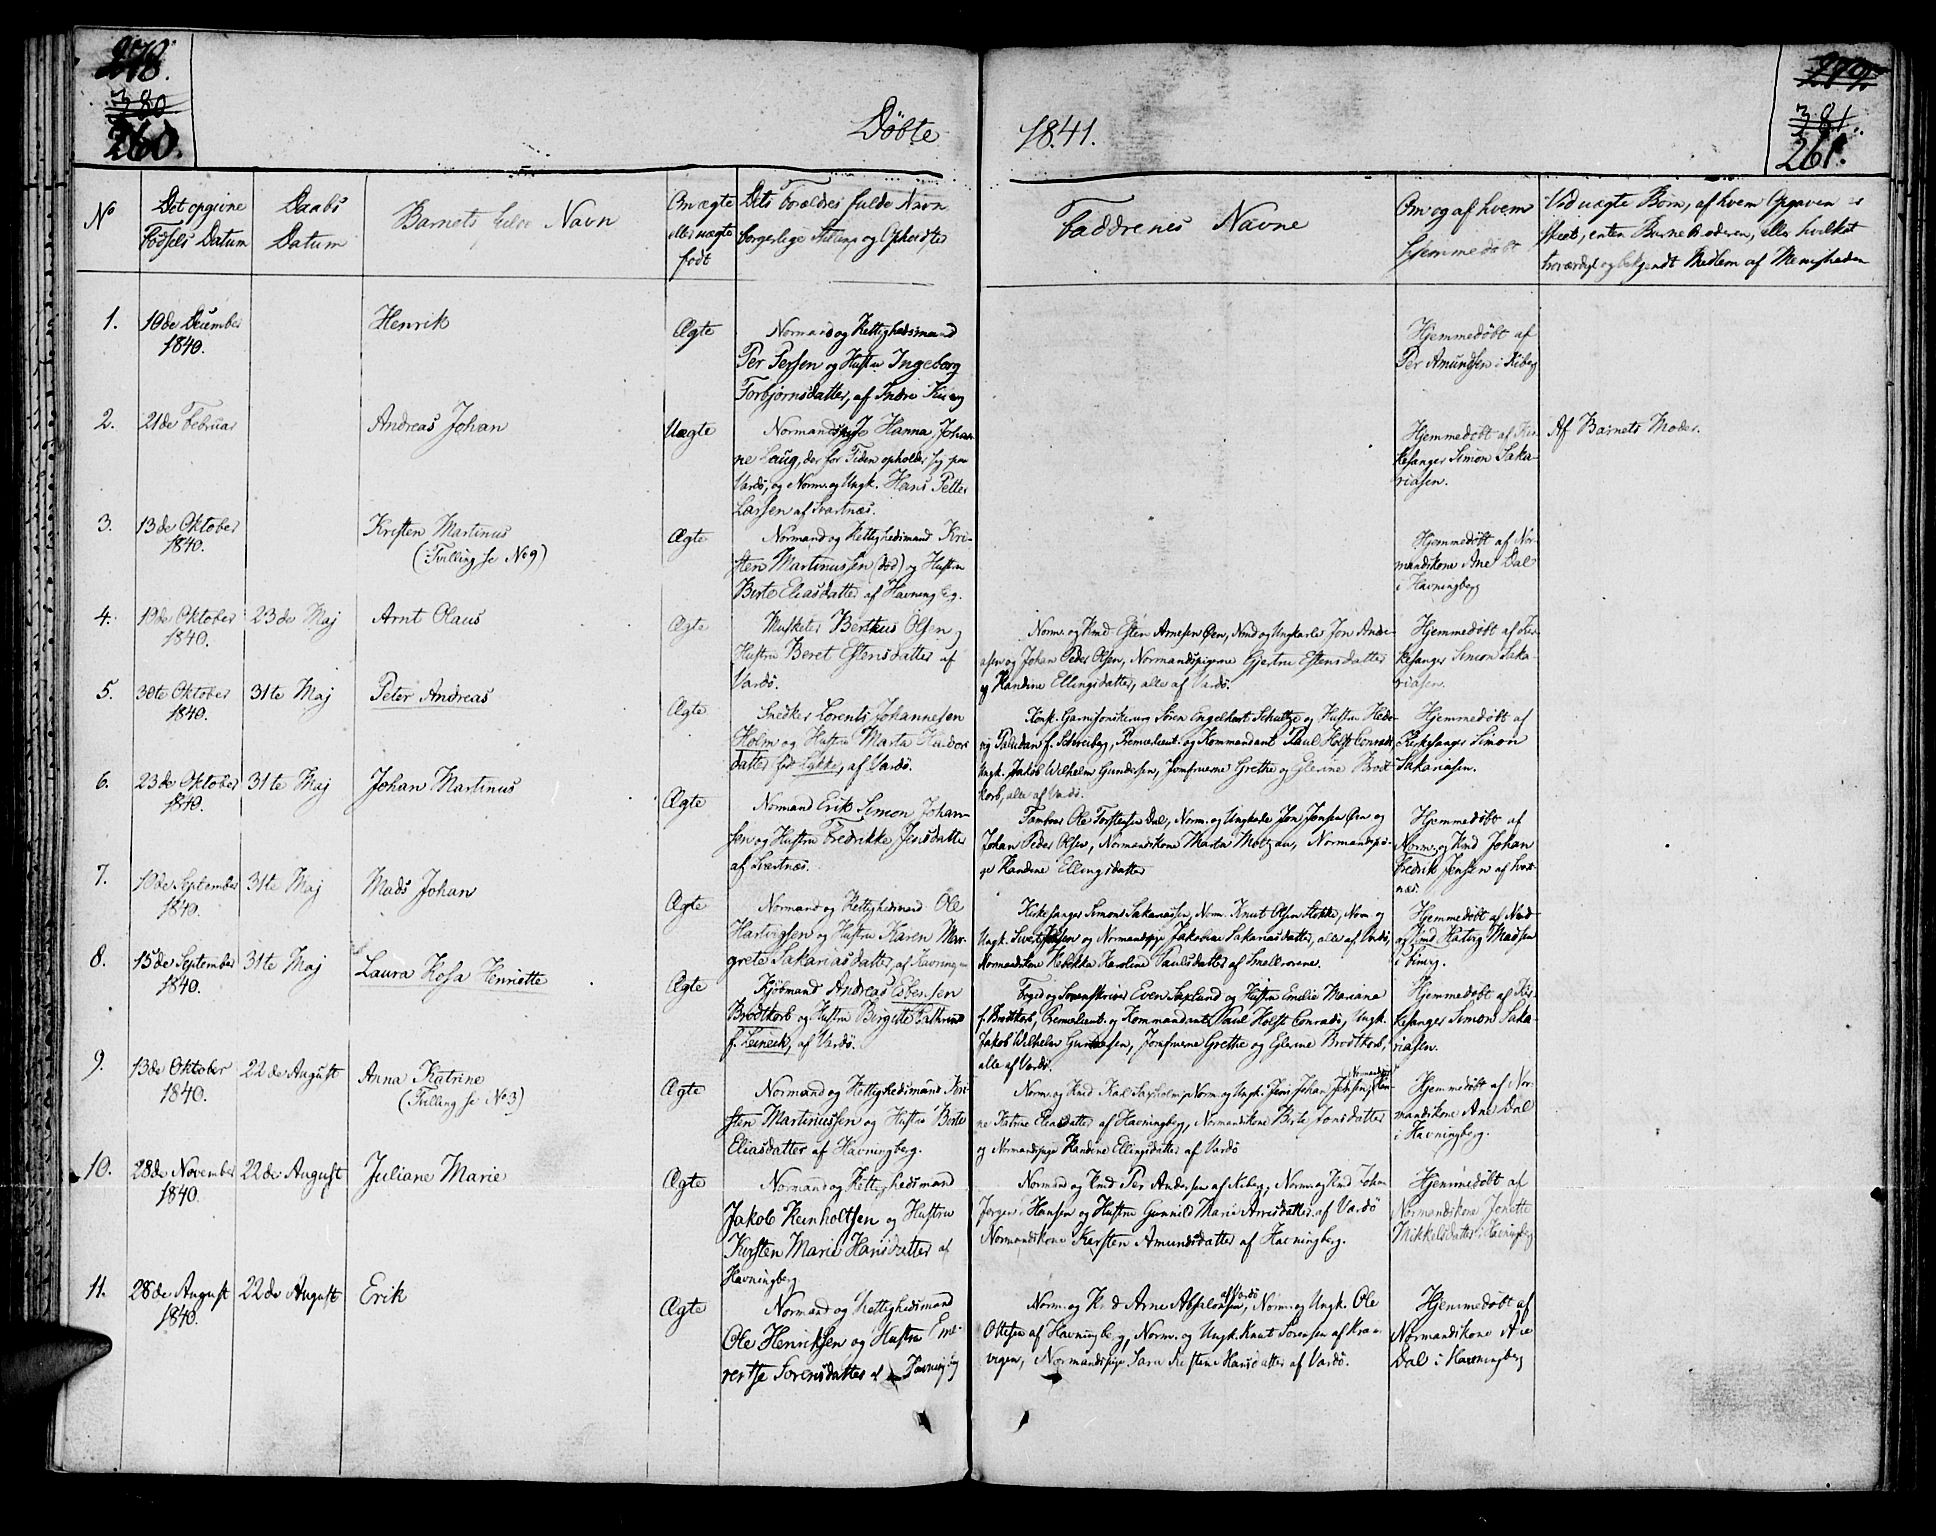 278.
380
260.
Döbte
1841.
279.
381.
261.
No
Det opgivne
Födsels Datum
Daabs
Datum
Barnets fulde Navn
Om ægte
eller uægte
født
Dets Forældres fulde Navn
borgerlige Stilling og Opholdsted
Faddrenes Navne
Om og af hvem
Hjemmedöbt
Ved uægte Börn, af hvem Opgaven er
skeet, enten Barnemoderen, eller hvilket
troværdigt og bekjendt Medlem af Menigheden
1.
10de December
1840.
Henrik
Ægte
Normand og Rettighedsmand
Per Persen og Hustru Ingeborg
Torbjörnsdatter, af Indre Kiberg
Hjemmedöbt af
Per Amundsen i Kiberg
2.
21de Februar
Andreas Johan
Uægte
Normandspige Hanna Johan-
ne Laug, der for Tiden opholder sig paa
Vardö, og Norm. og Ungk. Hans Petter
Larsen af Svartnæs.
Hjemmedöbt af Kir-
kesanger Simon Saka-
riasen.
Af Barnets Moder.
3.
13de Oktober
1840.
Kristen Martinus
(Tvilling se No 9)
Ægte
Normand og Rettighedsmand Kri-
sten Martinussen (död) og Hustru
Birte Eliasdatter af Havningberg.
Hjemmedöbt af Nor-
mandskone Ane Dal
i Havningberg
4.
19de Oktober
1840.
23de Maj
Arnt Olaus
Ægte
Musketer Berthus Olsen og
Hustru Beret Estensdatter af
Vardö.
Norm. og Rmd Esten Arnesen Öen, Nmd og Ungkarle Jon Andre-
asen og Johan Peder Olsen, Normandspigerne Gjertru Estensdatter
og Randine Ellingsdatter, alle af Vardö.
Hjemmedöbt af Kir-
kesanger Simon Saka-
riasen.
5.
30te Oktober
1840.
31te Maj
Peter Andreas
Ægte
Snedker Lorents Johannesen
Holm og Hustru Marta
datter föd Lykke, af Vardö.
Konst. Garnisonskirurg Sören Engelhart Schultze og Hustru Hed-
vig Paludan f. Schreiberg, Premierlieut. og Kommandant Paul Holst Conradi,
Ungk. Jakob Wilhelm Gundersen, Jomfruerne Grethe og Glerine Brodt-
korb, alle af Vardö.
Hjemmedöbt af
Kirkesanger Simon
Sakariasen.
6.
23de Oktober
1840.
31te Maj
Johan Martinus
Ægte
Normand Erik Simon Johan-
sen og Hustru Fredrikke Jensdatter
af Svartnæs.
Tambour Ole Torstensen Dal, Norm. og Ungkarle Jon Jonsen Öen og
Johan Peder Olsen, Normandskone Marta Motzau, Normandspi-
ge Randine Ellingsdatter
Hjemmedöbt af
Norm. og Rmd Johan
Fredrik Jensen af Svart-
næs.
7.
10de September
1840.
31te Maj
Mads Johan
Ægte
Normand og Rettighedsmand Ole
Hartvigsen og Hustru Karen Mar-
grete Sakariasdatter, af
Kirkesanger Simon Sakariassen, Norm. Knut Olsen Stokke, Norm og
Ungk. Sivert Jensen og Normandspige Jakobine Sakariasdatter, alle af Vardö,
Normandskone Rebekka Karoline Paulsdatter af Smellroren.
Hjemmedöbt af Nmd
og Rmd Hartvig Madsen
i Kiberg.
8.
15de September
1840.
31te Maj
Laura Rosa Henriette
Ægte
Kjöbmand Andreas Esbensen
Brodtkorb og Hustru Birgitte Cathrine
f. Leinech, af Vardö.
Foged og Sorenskriver Even Saxlund og Hustru Emilie Mariane
f. Brodtkorb, Premierlieut. og Kommandant Paul Holst Conradi, Ungk.
Jakob Wilhelm Gundersen, Jomfruerne Grethe og Glerine Brodtkorb,
alle af Vardö.
Hjemmedöbt af Kir-
kesanger Simon Saka-
riasen.
9.
13de Oktober
1840.
22de August
Anna Katrine
(Tvilling se No 3)
Ægte
Normand og Rettighedsmand Kri-
sten Martinussen og Hustru Birte
Eliasdatter af Havningberg.
Norm. og Rmd Karl Saxholm, Norm. og Ungk. Jens Johan Jensen,
ne Katrine Eliasdatter af Havningberg, Normandskone Birte Jonsdatter
og Normandspige Randine Ellingsdatter af Vardö
Hjemmedöbt af Nor-
mandskone Ane Dal
i Havningberg.
10.
28de November
1840.
22de August
Juliane Marie
Ægte
Normand og Rettighedsmand
Jakob Reinholtsen og Hustru
Kirsten Marie Hansdatter af
Havningberg
Normand og Rmd Per Andersen af Kiberg, Norm. og Rmd Johan
Jörgen Hansen og Hustru Gunnild Marie Arnesdatter af Vardö
Normandskone Karsten Amundsdatter af Havningberg.
Hjemmedöbt af
Normandskone Jonette
Mikkelsdatter i Havningberg
11.
28de August
1840.
22de August
Erik
Ægte
Normand og Rettighedsmand
Ole Henriksen og Hustru Em-
rentse Sörensdatter af Havningberg
Norm. og Rmd Arne Absalonsen af Vardö, Norm. og Ungk. Ole
Ottesen af Havningberg, Norm. og Ungk. Knut Sörensen af Kram-
vigen, Normandspige Sara Kirstine Hansdatter af Vardö.
Hjemmedöbt af
Normandskone Ane
Dal i Havningberg